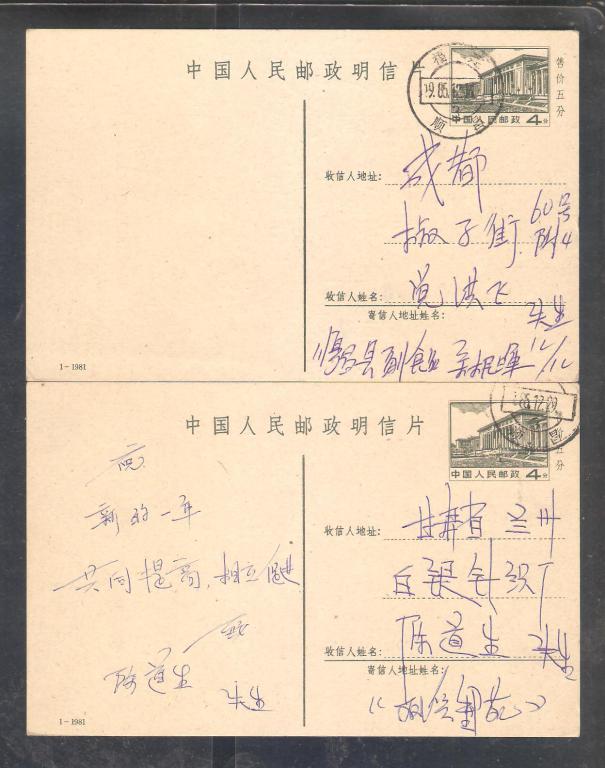 中国人民邮政明信片
售价五分
中国人民邮政 4分
顺昌
收信人地址:
成都
椒子街 60号
附4
收信人姓名:
洪飞
先生
寄信人地址姓名:
顺昌县副食
12/12
1-1981
中国人民邮政明信片
五分
中国人民邮政 4分
祝
新的一年
共同提高,相互促进
致
陈道生
先生
收信人地址:
甘肃省兰州
白银针织厂
收信人姓名:
陈道生 先生
寄信人地址姓名:
1-1981